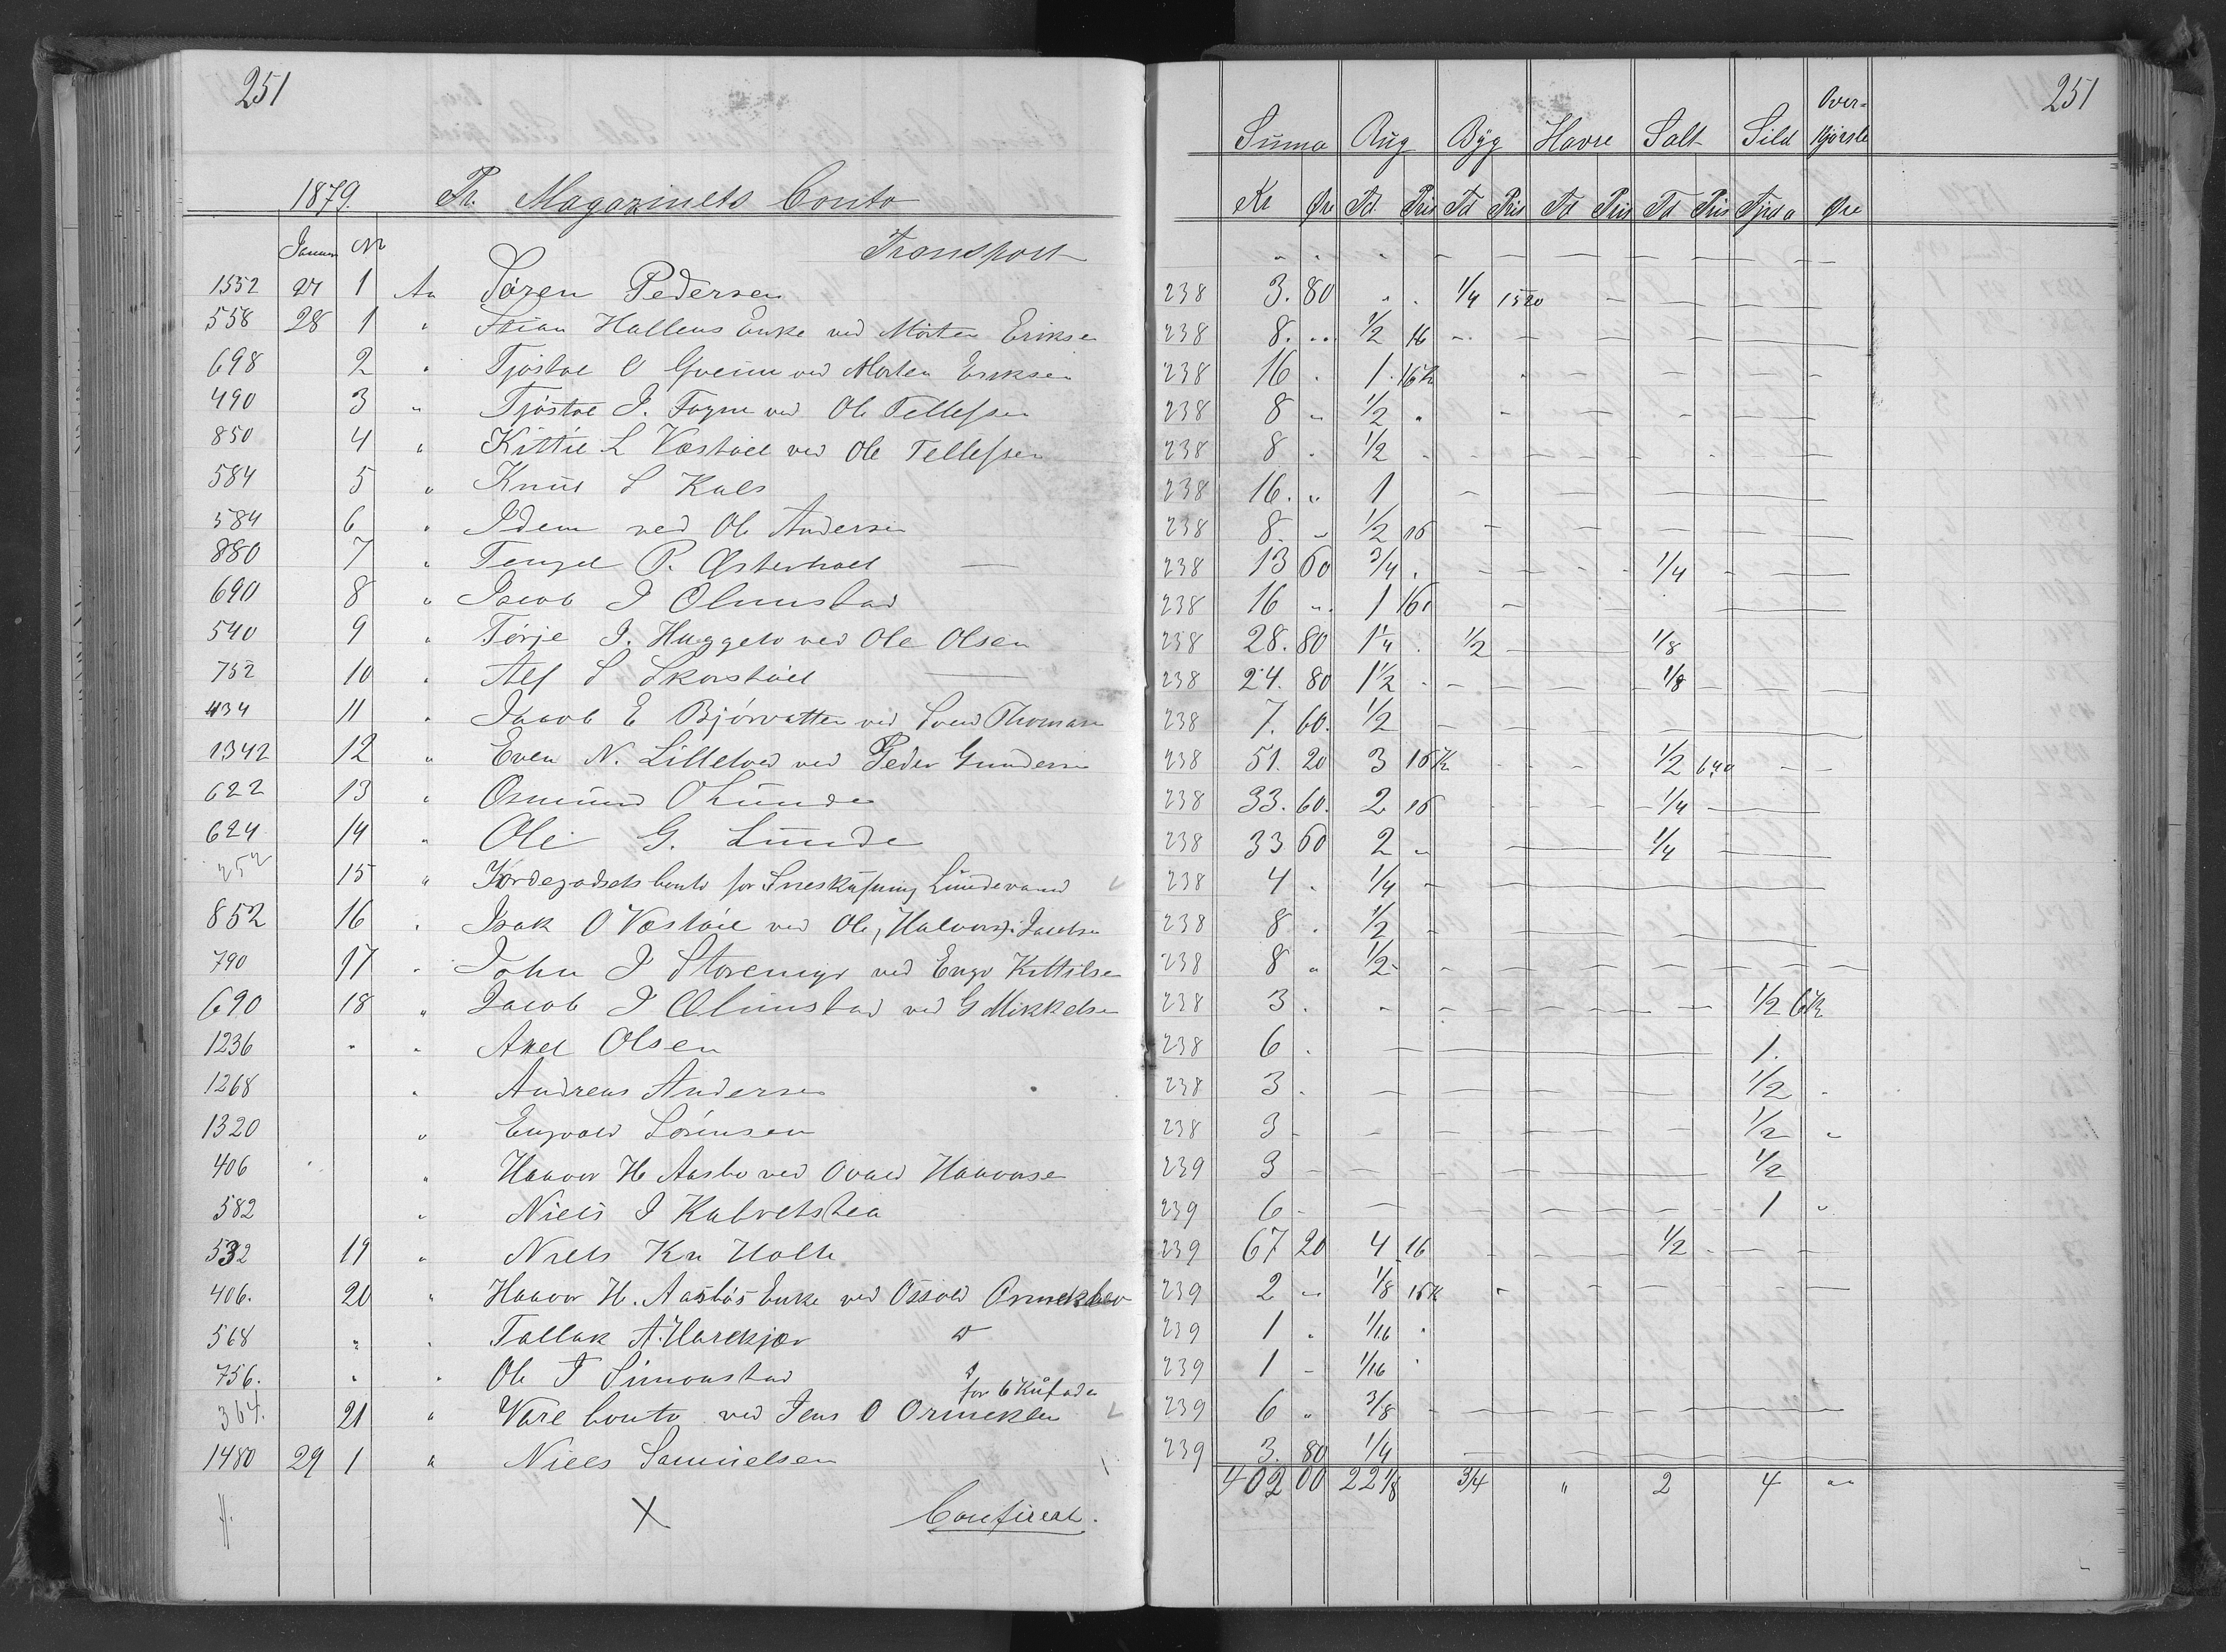 251 251
Suma Rug Byg Havre Salt Sild Over-kjørsle
1879. Pr. Magazinets Conto Kr Øre Td. Pris Td Pris Td Pris Td Pris Fjrd Øre
Januar Nr Transport
1552 27 1 An Søren Pedersen 238 3. 80 " 1/4 1520
558 28 1 " Stian Hallens Enke ved Morten Eriksen 238 8. " 1/2 16
698 2 " Tjøstoe O ved Morten Eriksen 238 16 " 1 16k
490 3 " Tjøstoe J. ved Ole Tellefsen 238 8 " 1/2 "
850 4 " Kittil L Vestøl ved Ole Tellefsen 238 8 " 1/2
584 5 " Knut S Kals 238 16. " 1
584 6 " Idem ved Ole Andersen 238 8. " 1/2 16
880 7 " Tengel P. Østerholt 238 13 60 3/4 1/4
690 8 " Jacob J Olimstad 238 16 " 1 16
540 9 " Tørje J. ved Ole Olsen 238 28. 80 1 1/4 1/2 1/8
752 10 " Alf S Skorstøl 238 24. 80 1 1/2 1/8
434 11 " Jacob E Bjørvatten ved Svend Thomasen 238 7. 60. 1/2
1342 12 " Even N. ved Peder Gundersen 238 51. 20 3 16k 1/2 640
622 13 " Osmund O Lunde 238 33. 60. 2 16 1/4
624 14 " Ole G. Lunde 238 33 60 2 " 1/4
252 15 " Conto for Lundevand 238 4 " 1/4
852 16 " Isak O Vestøl ved Ole, Halvor & Jacobsen 238 8 " 1/2
790 17 " John J Storemyr ved Kittilsen 238 8 " 1/2
690 18 " Jacob J Olimstad ved G Mikkelsen 238 3. 1/2 6k
1236 " " Axel Olsen 238 6. 1.
1268 " Andreas Andersen 238 3. 1/2 "
1320 " Engvald Sørensen 238 3 1/2 "
406 " Haavor H Aasbø ved Haavorsen 239 3 1/2
582 " Niels J 239 6 1 "
532 19 " Niels Kn Holte 239 67 20 4 16 1/2
406. 20 " Haavor H. Aasbøs Enke ved Osvold 239 2 " 1/8 16k
568 " " Tallak A. Harekjær do 239 1 " 1/16 "
756. " " Ole T Simonstad 239 1 1/16
for 6
364. 21 " Vare Conto ved Jens O 239 6 " 3/8
1480 29 1 " Niels Samuelsen 239 3. 80 1/4
402 00 22 1/8 3/4 " 2 4 "
X Confereret.